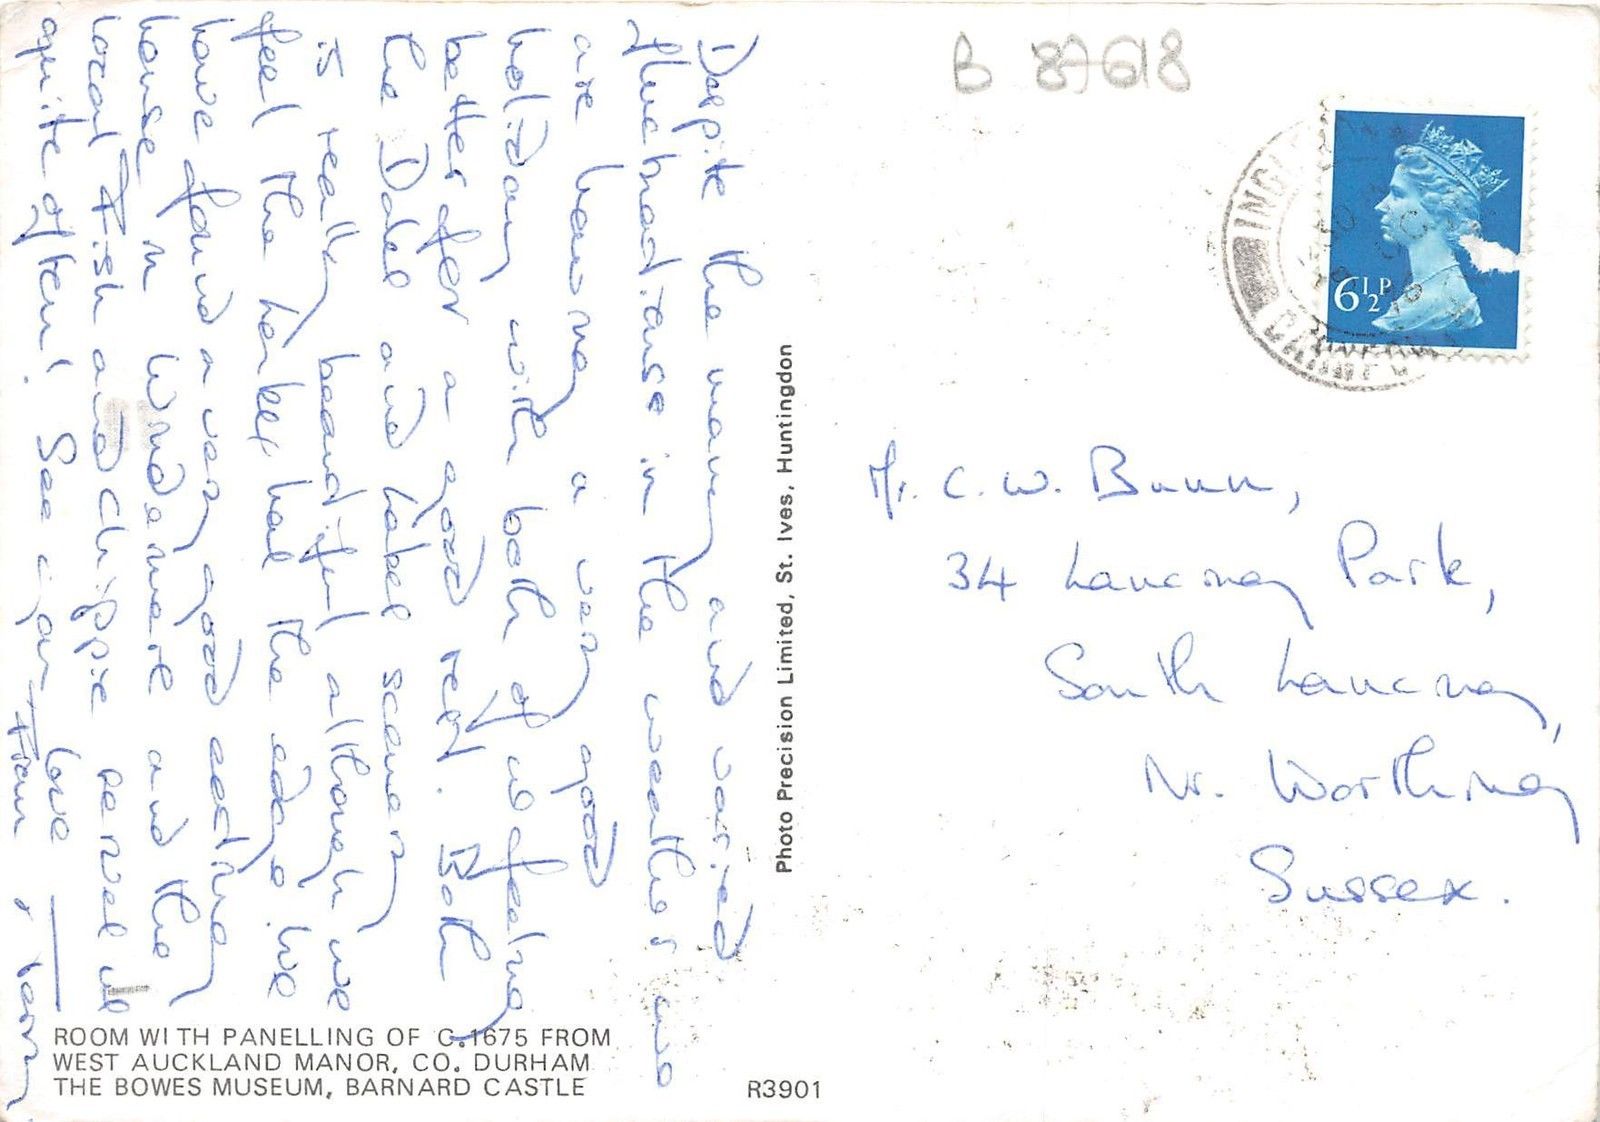 Despite the many and varied
fluctuations in the weather we
are having a very good
holiday with both of us feeling
better for a good rest. Both
the Dales and Lakes scenery
is really beautiful although we
feel the Lakes had the edge. We
have found a very good eating
house in Windermere and the
local Fish and chippie served us
quite often! See you
love
Fran,
B 87618
6½P
Mr. C. W. Bunn,
34 Lancing Park,
South Lancing,
Nr. Worthing
Sussex.
Photo Precision Limited, St. Ives, Huntingdon
ROOM WITH PANELLING OF C.1675 FROM
WEST AUCKLAND MANOR, CO. DURHAM
THE BOWES MUSEUM, BARNARD CASTLE
R3901